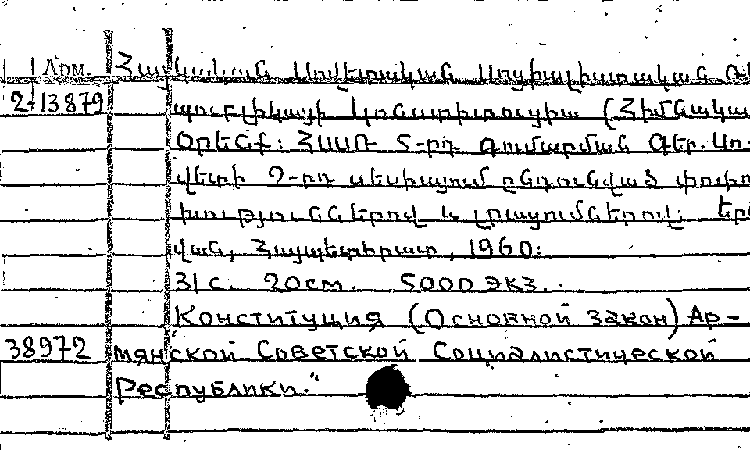 Арм. Հայկական Սովետական Սոցիալիստական Ռե
2-13879 պուբլիկայի կոնստիտուցիա (Հիմնական
Օրենք: ՀՍՍՌ 5-րդ գումարման Գեր. Սո-
վետի 2-րդ սեսիայում ընդունված փոփո
խություններով և լրացումներով: Երե
վան, Հայպետհրատ, 1960:
31 с. 20см. 5000 экз.
Конституция (Основной закон) Ар-
38972 мянской Советской Социалистической
Республики."